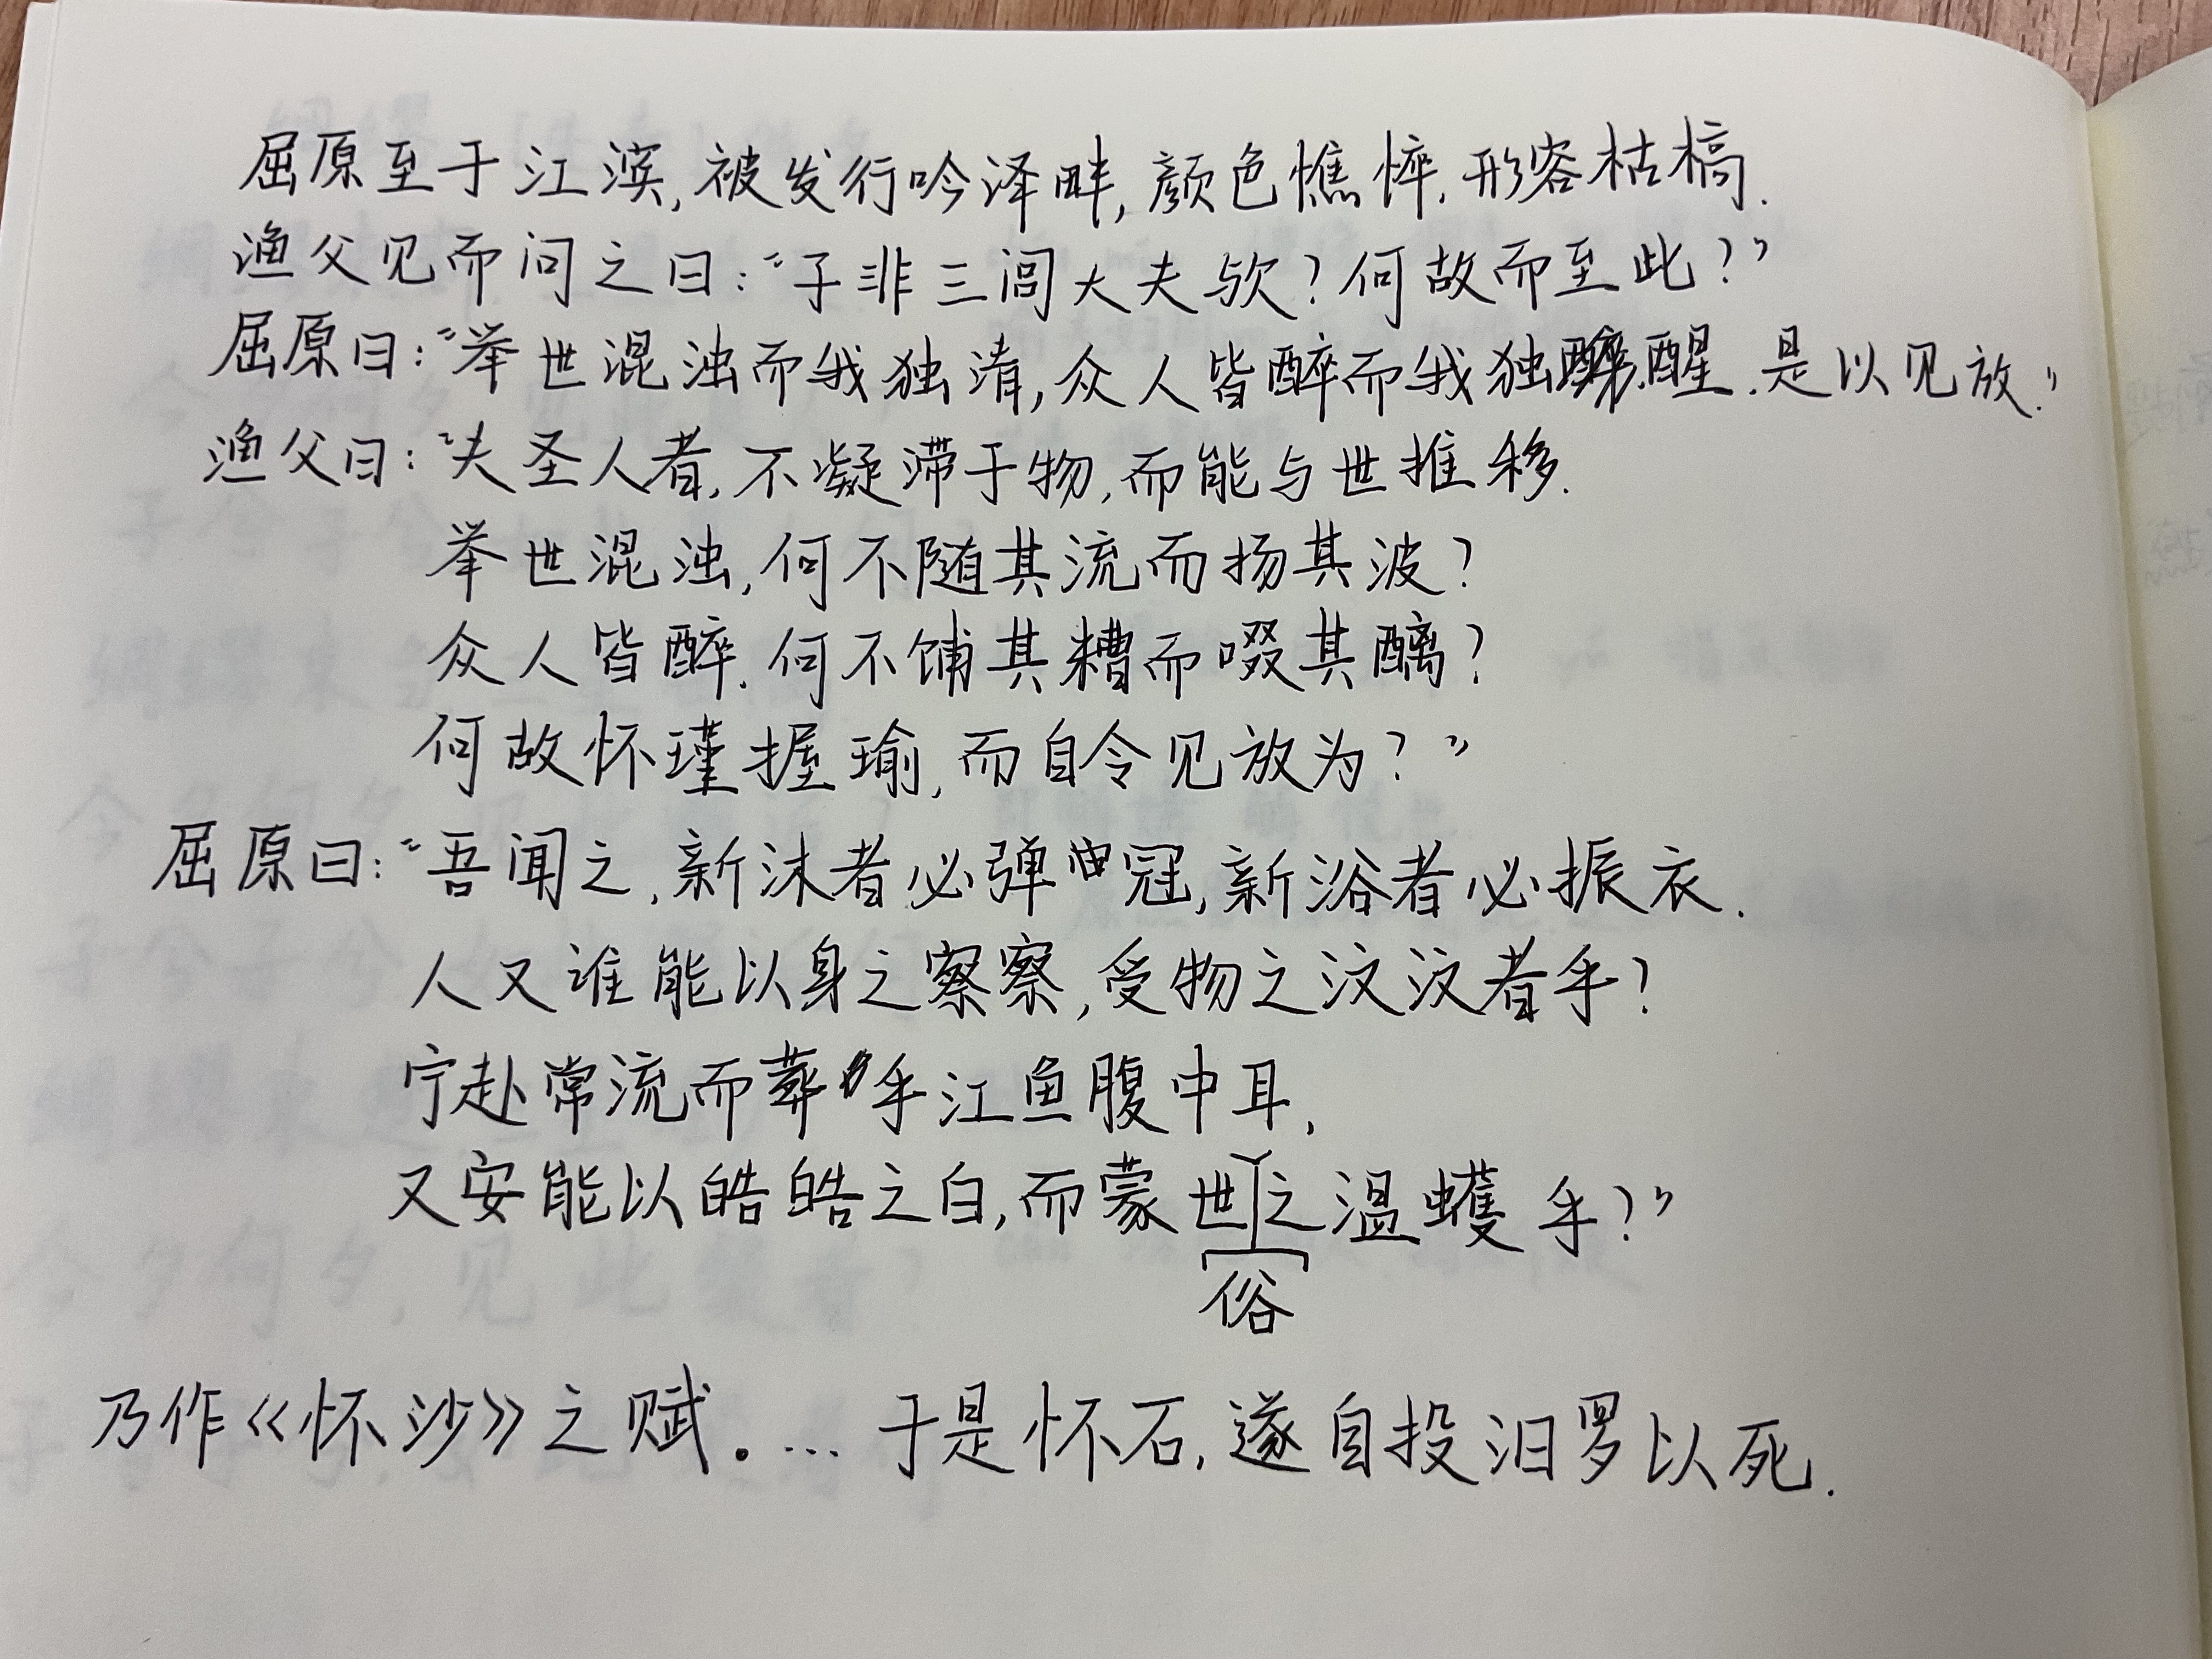 屈原至于江滨,被发行吟泽畔,颜色憔悴.形容枯槁.
渔父见而问之曰:“子非三闾大夫欤?何故而至此?”
屈原曰:“举世混浊而我独清,众人皆醉而我独醒.是以见放.”
渔父曰:“夫圣人者,不凝滞于物,而能与世推移.
举世混浊,何不随其流而扬其波?
众人皆醉.何不餔其糟而啜其醨?
何故怀瑾握瑜,而自令见放为?”
屈原曰:“吾闻之,新沐者必弹冠,新浴者必振衣.
人又谁能以身之察察,受物之汶汶者乎?
宁赴常流而葬乎江鱼腹中耳,
又安能以皓皓之白,而蒙世之温蠖乎?”
俗
乃作《怀沙》之赋。...于是怀石,遂自投汨罗以死.